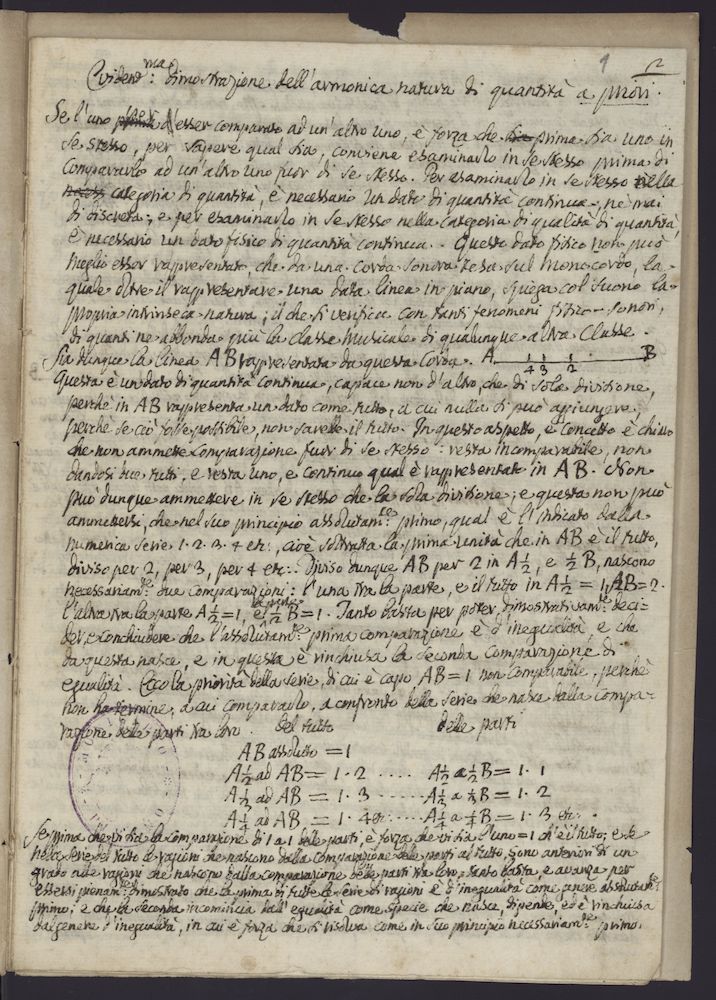 1 2
Evidend.ma dimostrazione dell'armonica natura di quantità a priori.
Se l'uno d'esser comparato ad un'altro uno, è forza che prima sia uno in
se stesso, per sapere qual sia, conviene esaminarlo in se stesso prima di
compararlo ad un'altro uno fuor di se stesso. Per esaminarlo in se stesso nella
categoria di quantità, è necessario un dato di quantità continua, nè mai
di discreta; e per esaminarlo in se stesso nella categoria di qualità di quantità,
è necessario un dato fisico di quantità continua. Questo dato fisico non può
meglio esser rappresentato, che da una corda sonora tesa sul monocordo, la
quale oltre il rappresentare una data linea in piano, spiega col suono la
propria intrinseca natura; il che si verifica con tanti fenomeni fisico-sonori,
di quanti ne abbonda più la classe musicale di qualunque altra classe.
Sia dunque la linea AB rappresentata da questa corda. A 1/4 1/3 1/2 B
Questa è un dato di quantità continua, capace non d'altro, che di sola divisione,
perchè in AB rappresenta un dato come tutto, a cui nulla si può aggiungere,
perchè se ciò fosse possibile, non sarebbe il tutto. In questo aspetto, e concetto è chiaro
che non ammette comparazione fuor di se stesso: resta incomparabile, non
dandosi due tutti, e resta uno, e continuo qual è rappresentato in AB. Non
può dunque ammettere in se stesso che la sola divisione; e questa non può
ammettersi, che nel suo principio assolutam.te primo, qual è l'indicato dalla
numerica serie 1. 2. 3. 4 etc:, cioè sottratta la prima unità che in AB è il tutto,
diviso per 2, per 3, per 4 etc:. Diviso dunque AB per 2 in A½, e ½B, nascono
necessariam.te due comparazioni: l'una tra la parte, e il tutto in A½ = 1, AB = 2.
l'altra tra la parte A½ = 1, e la parte ½B = 1. Tanto basta per poter dimostrativam.te deci=
der, e conchiudere che l'assolutam.te prima comparazione è d'inegualità e che
da questa nasce, e in questa è rinchiusa la seconda comparazione di
egualità. Ecco la priorità della serie, di cui è capo AB = 1 non comparabile, perchè
non ha termine, a cui compararlo, a confronto della serie che nasce dalla compa-
razione delle parti tra loro. del tutto delle parti
AB assoluto = 1
A½ ad AB = 1. 2 ..... A½ a ½B = 1. 1
A⅓ ad AB = 1. 3 ..... A⅓ a ⅓B = 1. 2
A¼ ad AB = 1. 4 etc: .... A¼ a ¼B = 1. 3 etc: .
Se prima che vi sia la comparazione di 1 a 1 delle parti, è forza che vi sia l'uno = 1 ch'è il tutto; e se
nella serie del tutto le ragioni che nascono dalla comparazione delle parti al tutto, sono anteriori di un
grado alle ragioni che nascono dalla comparazione delle parti tra loro, tanto basta, e avanza per
essersi pienam.te dimostrato che la prima di tutte le serie di ragioni è d'inegualità come genere assolutam.te
primo; e che la seconda incomincia dall'egualità come specie che nasce, dipende, ed è rinchiusa
dal genere d'inegualità, in cui è forza che si risolva come in suo principio necessariam.te primo.